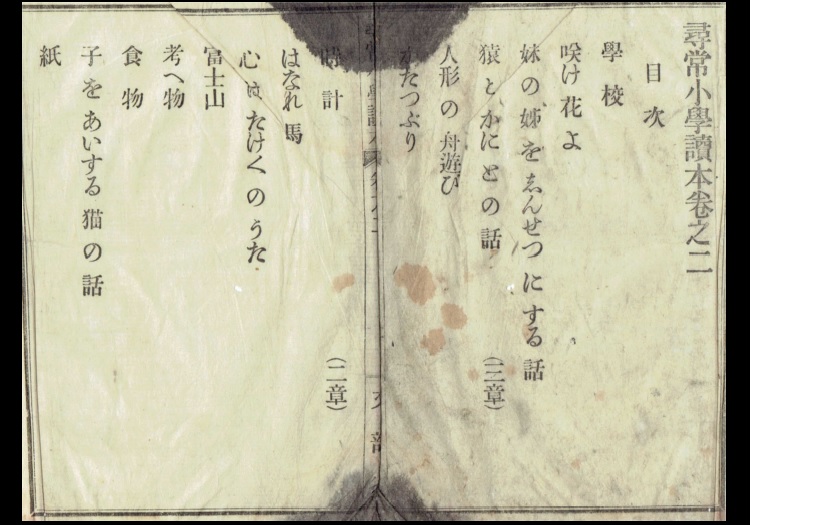 尋常小學讀本卷之二
目次
學校
咲け花よ
妹の姊をゑんせつにする話
猿とかにとの話 (三章)
人形の舟遊び
かたつぶり
時計 (二章)
はなれ馬
心はたけくのうた
富士山
考へ物
食物
子をあいする猫の話
紙